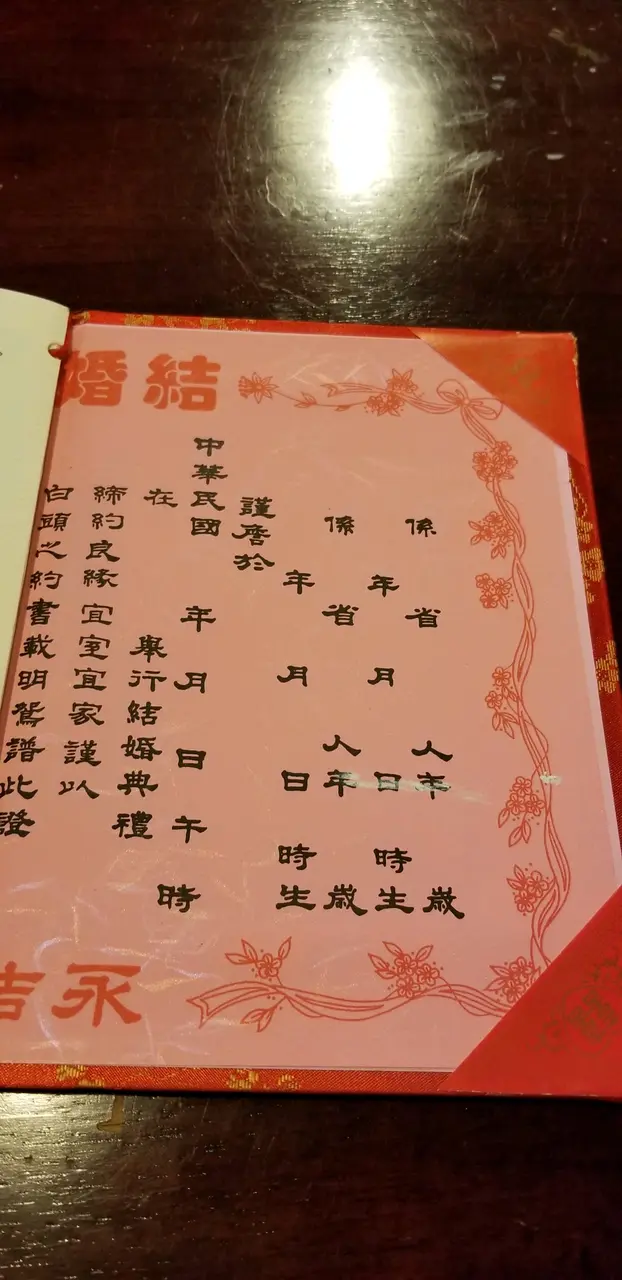 結婚
係 省 人 年 歲
年 月 日 時 生
係 省 人 年 歲
年 月 日 時 生
謹詹於
中華民國 年 月 日 午 時
在 舉行結婚典禮
締約良緣宜室宜家謹以
白頭之約書載明鴛譜此證
永